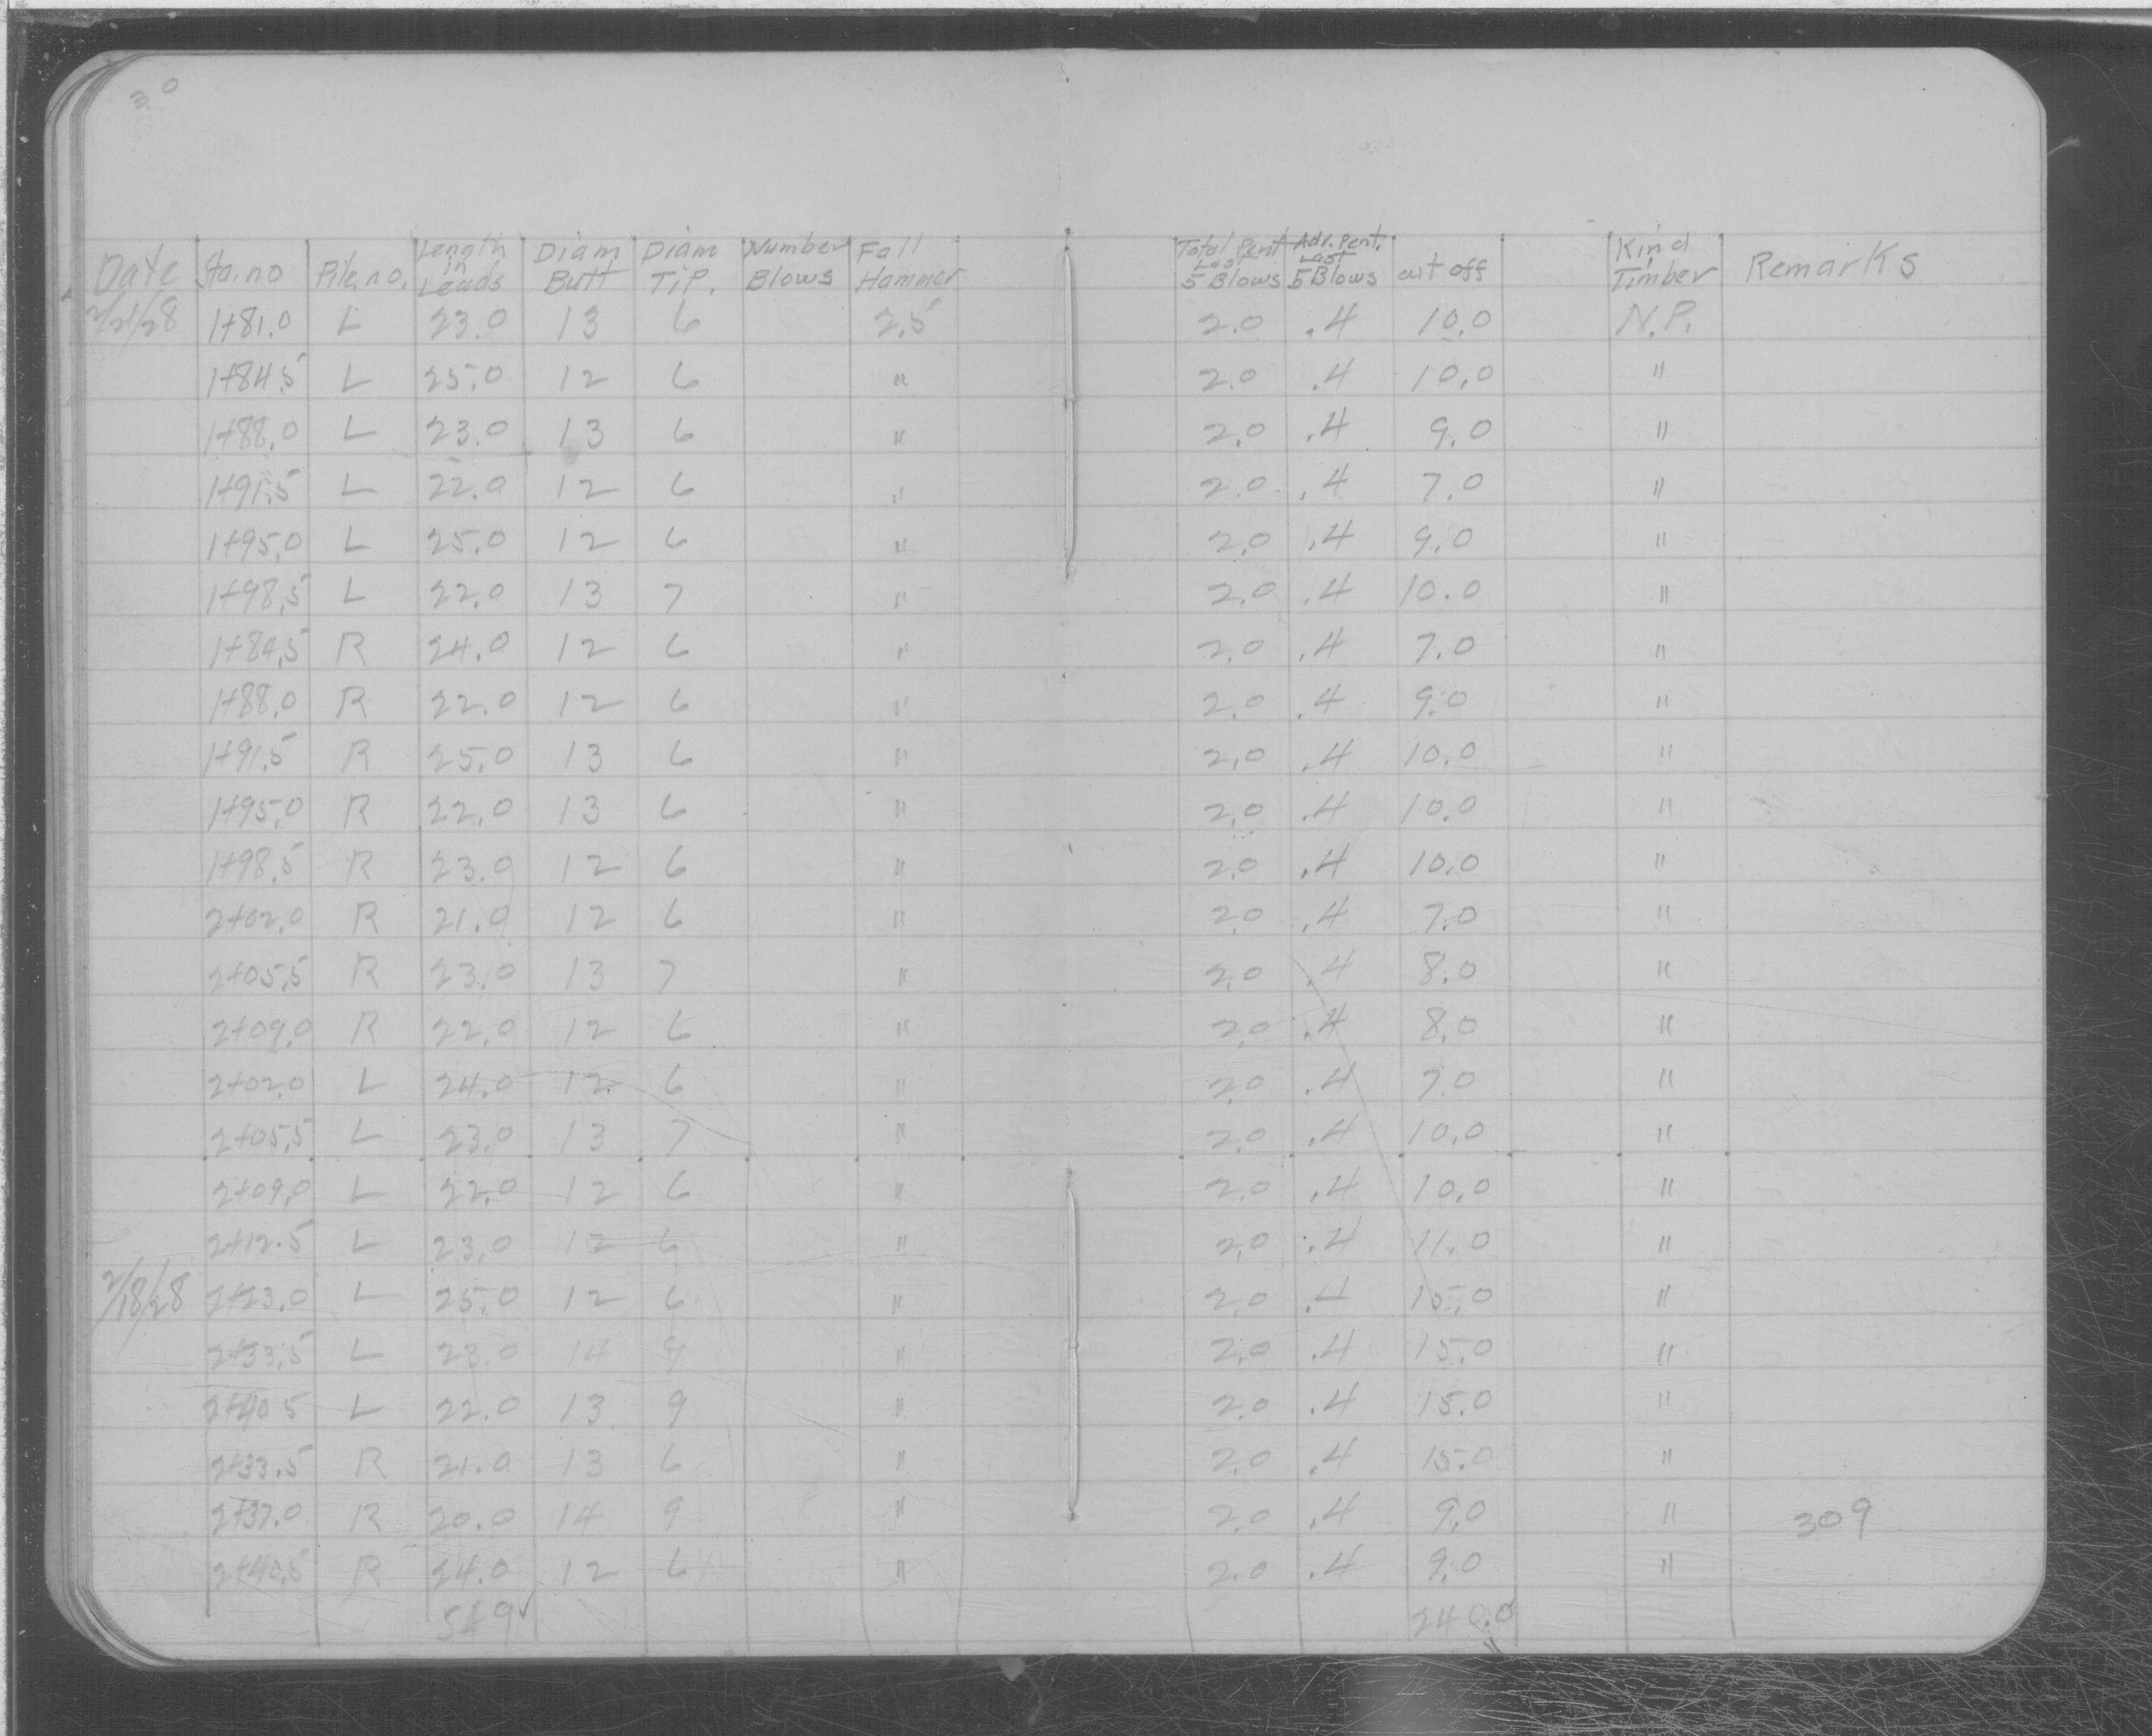 30
Date Sta.no Pile.no. Length in Leads Diam Butt Diam Tip. Number Blows Fall Hammer Total Pent Last 5 Blows Adr. Pent. Last 5 Blows cut off Kind Timber Remarks
2/21/28 1+81.0 L 23.0 13 6 2.5 2.0 .4 10.0 N.P.
1+84.5 L 25.0 12 6 " 2.0 .4 10.0 "
1+88.0 L 23.0 13 6 " 2.0 .4 9.0 "
1+91.5 L 22.0 12 6 " 2.0 .4 7.0 "
1+95.0 L 25.0 12 6 " 2.0 .4 9.0 "
1+98.5 L 22.0 13 7 " 2.0 .4 10.0 "
1+84.5 R 24.0 12 6 " 2.0 .4 7.0 "
1+88.0 R 22.0 12 6 " 2.0 .4 9.0 "
1+91.5 R 25.0 13 6 " 2.0 .4 10.0 "
1+95.0 R 22.0 13 6 " 2.0 .4 10.0 "
1+98.5 R 23.0 12 6 " 2.0 .4 10.0 "
2+02.0 R 21.0 12 6 " 2.0 .4 7.0 "
2+05.5 R 23.0 13 7 " 2.0 .4 8.0 "
2+09.0 R 22.0 12 6 " 2.0 .4 8.0 "
2+02.0 L 24.0 12 6 " 2.0 .4 7.0 "
2+05.5 L 23.0 13 7 " 2.0 .4 10.0 "
2+09.0 L 22.0 12 6 " 2.0 .4 10.0 "
2+12.5 L 23.0 12 6 " 2.0 .4 11.0 "
2/18/28 2+23.0 L 25.0 12 6 " 2.0 .4 15.0 "
2+33.5 L 23.0 14 9 " 2.0 .4 15.0 "
2+40.5 L 22.0 13 9 " 2.0 .4 15.0 "
2+33.5 R 21.0 13 6 " 2.0 .4 15.0 "
2+37.0 R 20.0 14 9 " 2.0 .4 9.0 " 309
2+40.5 R 24.0 12 6 " 2.0 .4 9.0 "
549 240.0